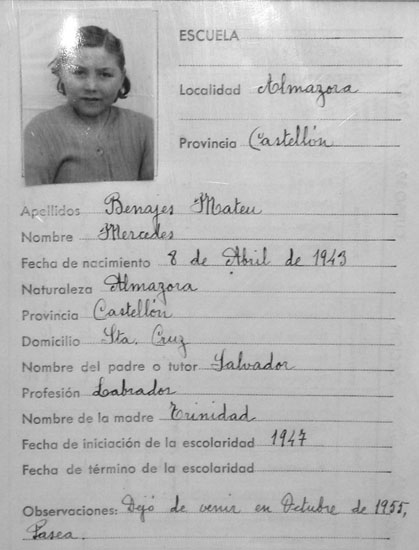 ESCUELA
Localidad Almazora
Provincia Castellón
Apellidos Benajes Mateu
Nombre Mercedes
Fecha de nacimiento 8 de Abril de 1943
Naturaleza Almazora
Provincia Castellón
Domicilio Sta. Cruz
Nombre del padre o tutor Salvador
Profesión Labrador
Nombre de la madre Trinidad
Fecha de iniciación de la escolaridad 1947
Fecha de término de la escolaridad
Observaciones: Dejó de venir en Octubre de 1955,
Pasea.